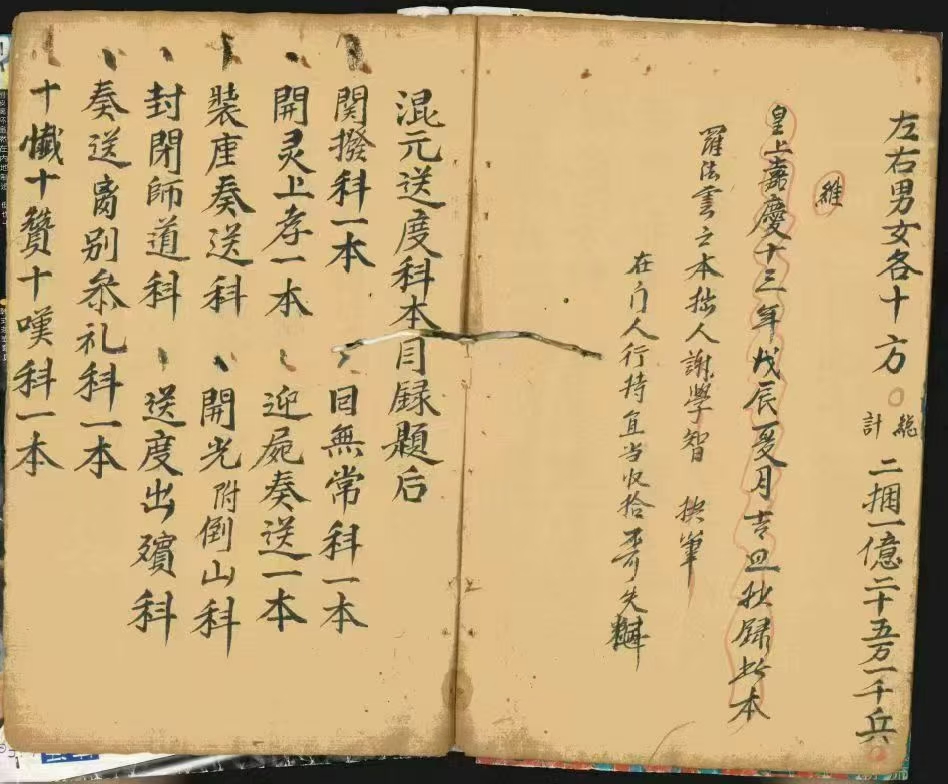 左右男女各十方〇總計二捆一億二十五万一千兵
維
皇上嘉慶十三年戊辰夏月吉旦抄録此本
羅法雲之本拙人謝學智 執筆
在门人行持宜当收拾不可失
混元送度科本目録題后
関撥科一本 目無常科一本
開灵上孝一本 迎屍奏送一本
裝座奏送科 開光附倒山科
封閉師道科 送度出殯科
奏送离别叅礼科一本
十懺十贊十嘆科一本